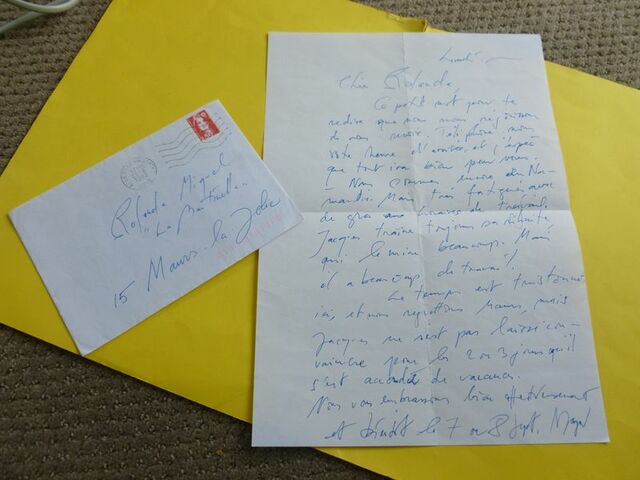 Rolande Miquel
"La
15 Maurs-la-Jolie
Lundi
Chère Rolande,
Ce petit mot pour te
redire que nous nous réjouissons
de vous revoir. Téléphone-moi
votre heure d'arrivée, et j'espère
que tout ira bien pour vous.
Nous sommes encore en Nor-
mandie. Mais très fatigués, avec
de gros travaux
Jacques traîne toujours sa
qui le mine beaucoup. Mais
il a beaucoup de travail!
Le temps est
ici, et nous regrettons Maurs, mais
Jacques ne s'est pas laissé con-
vaincre pour les 2 ou 3 jours qu'il
s'est accordé de vacances.
Nous vous embrassons bien affectueusement
et bientôt le 7 ou 8 Sept.